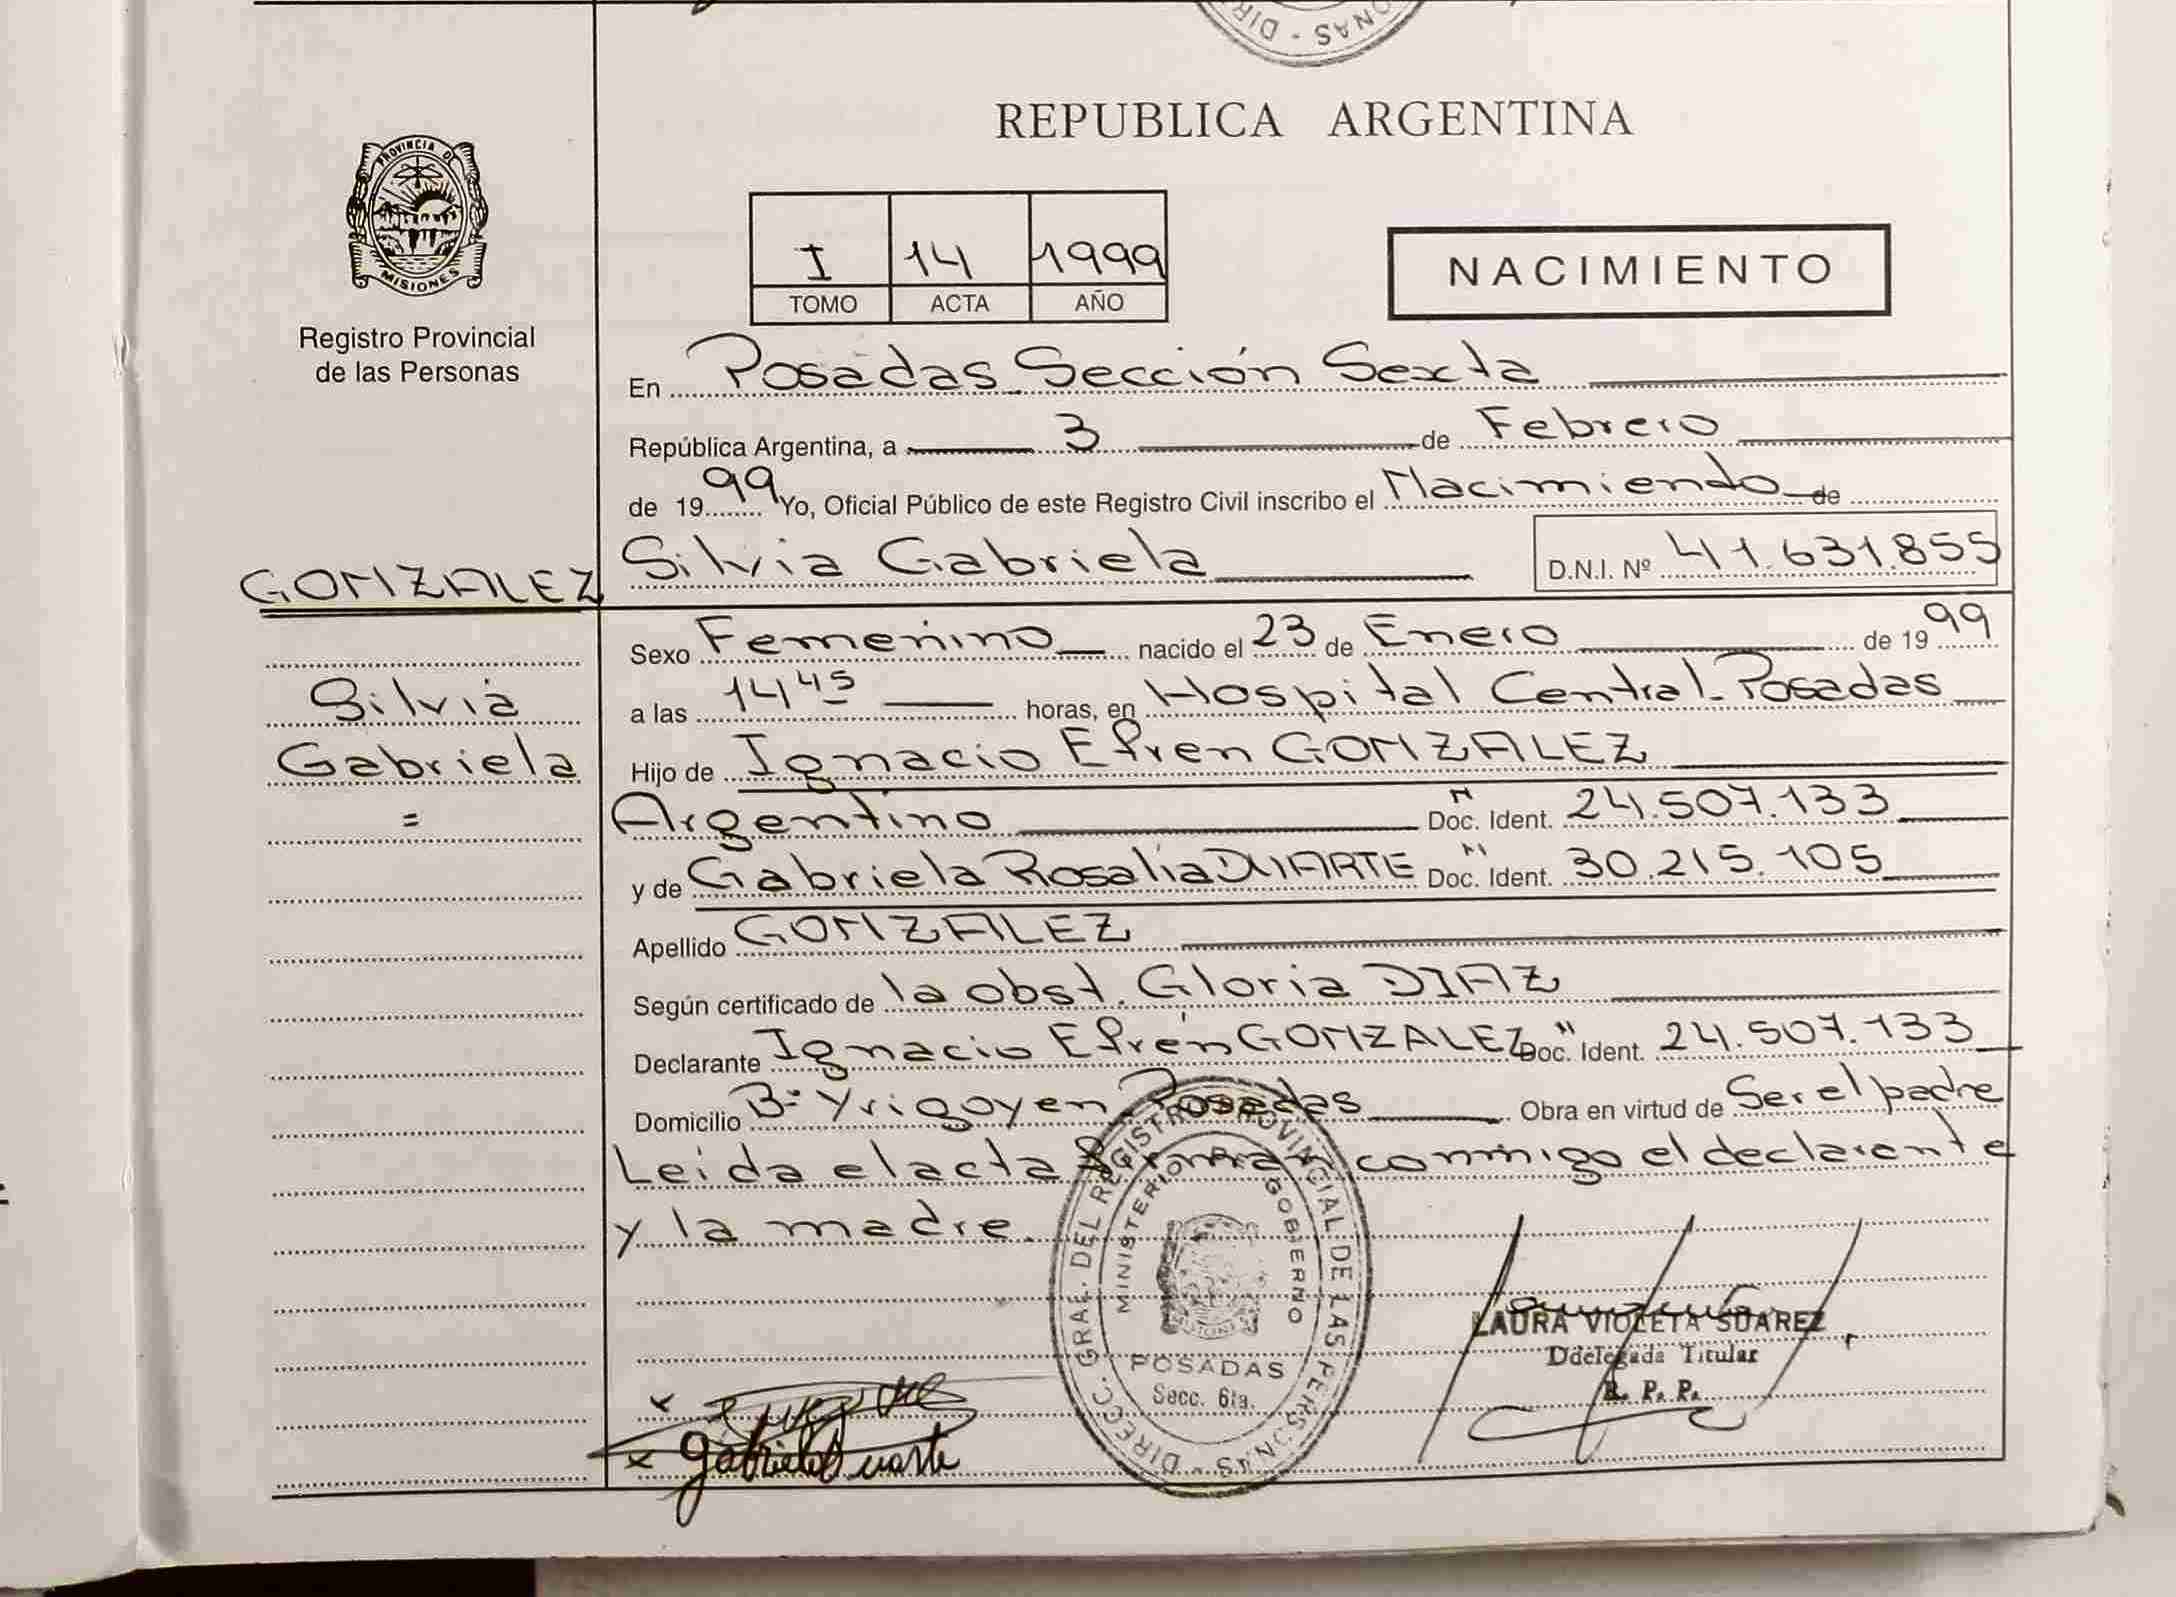 DIR ONAS - DIRE
REPUBLICA ARGENTINA
PROVINCIA DE MISIONES
Registro Provincial
de las Personas
I 14 1999
TOMO ACTA AÑO
NACIMIENTO
En Posadas Sección Sexta
República Argentina, a 3 de Febrero
de 1999 Yo, Oficial Público de este Registro Civil inscribo el Nacimiendo de
GONZALEZ Silvia Gabriela D.N.I. Nº 41.631.855
Sexo Femenino nacido el 23 de Enero de 1999
Silvia
a las 14 45 horas, en Hospital Central-Posadas
Gabriela
Hijo de Ignacio Efren GONZALEZ
=
Argentino Doc. Ident. N 24.507.133
y de Gabriela Rosalia DUARTE Doc. Ident. N 30.215.105
Apellido GONZALEZ
Según certificado de la obst. Gloria DIAZ
Declarante Ignacio Efrén GONZALEZ Doc. Ident. " 24.507.133
Domicilio Bº Yrigoyen Posadas Obra en virtud de Ser el padre
Leida el acta firman conmigo el declarante
y la madre.
DIRECC. GRAL. DEL REGISTRO PROVINCIAL DE LAS PERSONAS -
MINISTERIO DE GOBIERNO
MISIONES
POSADAS
Secc. 6ta.
LAURA VIOLETA SUAREZ
Ddelegada Titular
R. P. P.
x
x Gabriela Duarte